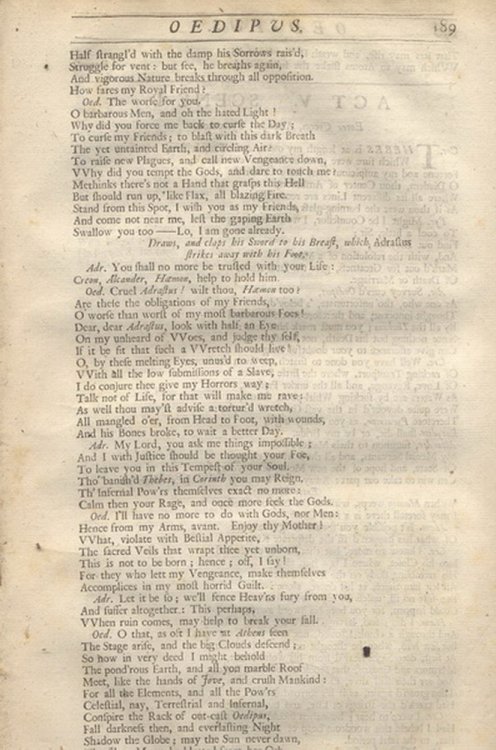 OEDIPUS. 189
Half ſtrangl'd with the damp his Sorrows rais'd,
Struggle for vent: but ſee, he breaths again,
And vigorous Nature breaks through all oppoſition.
How fares my Royal Friend?
Oed. The worſe for you.
O barbarous Men, and oh the hated Light!
Why did you force me back to curſe the Day;
To curſe my Friends; to blaſt with this dark Breath
The yet untainted Earth, and circling Air?
To raiſe new Plagues, and call new Vengeance down,
VVhy did you tempt the Gods, and dare to touch me?
Methinks there's not a Hand that graſps this Hell
But ſhould run up, like Flax, all blazing Fire.
Stand from this Spot, I wiſh you as my Friends,
And come not near me, leſt the gaping Earth
Swallow you too —— Lo, I am gone already.
Draws, and claps his Sword to his Breaſt, which Adraſtus
ſtrikes away with his Foot.
Adr. You ſhall no more be truſted with your Life:
Creon, Alcander, Hæmon, help to hold him.
Oed. Cruel Adraſtus! wilt thou, Hæmon too?
Are theſe the obligations of my Friends,
O worſe than worſt of my moſt barbarous Foes!
Dear, dear Adraſtus, look with half an Eye
On my unheard of VVoes, and judge thy ſelf,
If it be fit that ſuch a VVretch ſhould live!
O, by theſe melting Eyes, unus'd to weep,
VVith all the low ſubmiſſions of a Slave,
I do conjure thee give my Horrors way;
Talk not of Life, for that will make me rave:
As well thou may'ſt adviſe a tortur'd wretch,
All mangled o'er, from Head to Foot, with wounds,
And his Bones broke, to wait a better Day.
Adr. My Lord, you ask me things impoſſible;
And I with Juſtice ſhould be thought your Foe,
To leave you in this Tempeſt of your Soul.
Tho' baniſh'd Thebes, in Corinth you may Reign.
Th' Infernal Pow'rs themſelves exact no more:
Calm then your Rage, and once more ſeek the Gods.
Oed. I'll have no more to do with Gods, nor Men:
Hence from my Arms, avant. Enjoy thy Mother!
VVhat, violate with Beſtial Appetite,
The ſacred Veils that wrapt thee yet unborn,
This is not to be born; hence; off, I ſay!
For they who lett my Vengeance, make themſelves
Accomplices in my moſt horrid Guilt.
Adr. Let it be ſo; we'll fence Heav'ns fury from you,
And ſuffer altogether: This perhaps,
VVhen ruin comes, may help to break your fall.
Oed. O that, as oft I have at Athens ſeen
The Stage ariſe, and the big Clouds deſcend;
So now in very deed I might behold
The pond'rous Earth, and all yon marble Roof
Meet, like the hands of Jove, and cruſh Mankind:
For all the Elements, and all the Pow'rs
Celeſtial, nay, Terreſtrial and Infernal,
Conſpire the Rack of out-caſt Oedipus,
Fall darkneſs then, and everlaſting Night
Shadow the Globe; may the Sun never dawn,